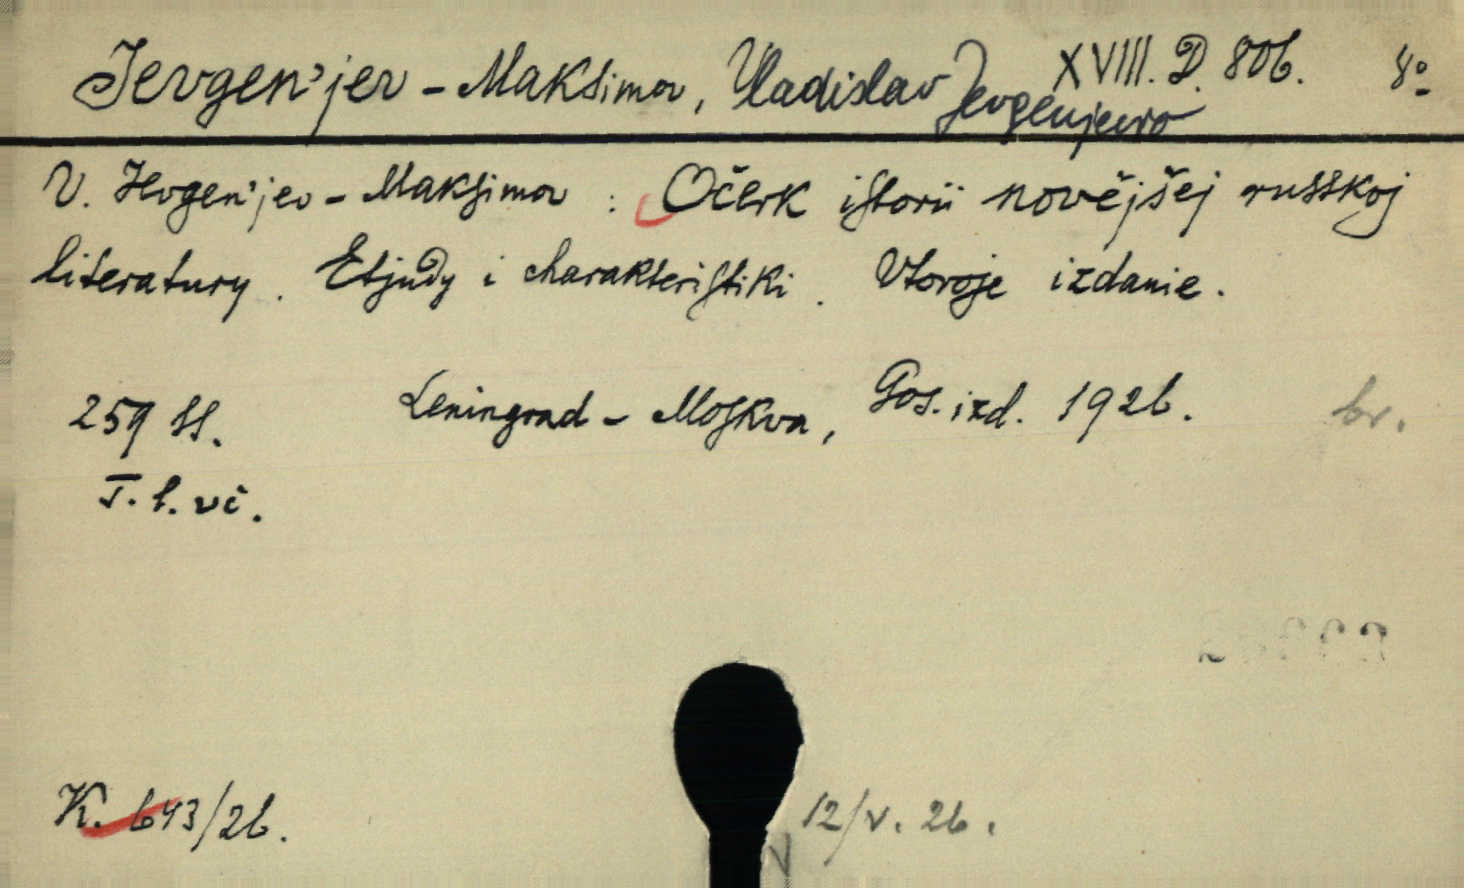 Jevgen'jev - Maksimov, Vladislav Jevgenjevič XVIII. D. 806. 8°
V. Jevgen'jev - Maksimov : Očerk istorii novějšej russkoj
literatury. Etjudy i charakteristiki. Vtoroje izdanie.
259 SS. Leningrad - Moskva, Gos. izd. 1926. br.
I. l. vč.
K. 643/26. 12/V. 26.